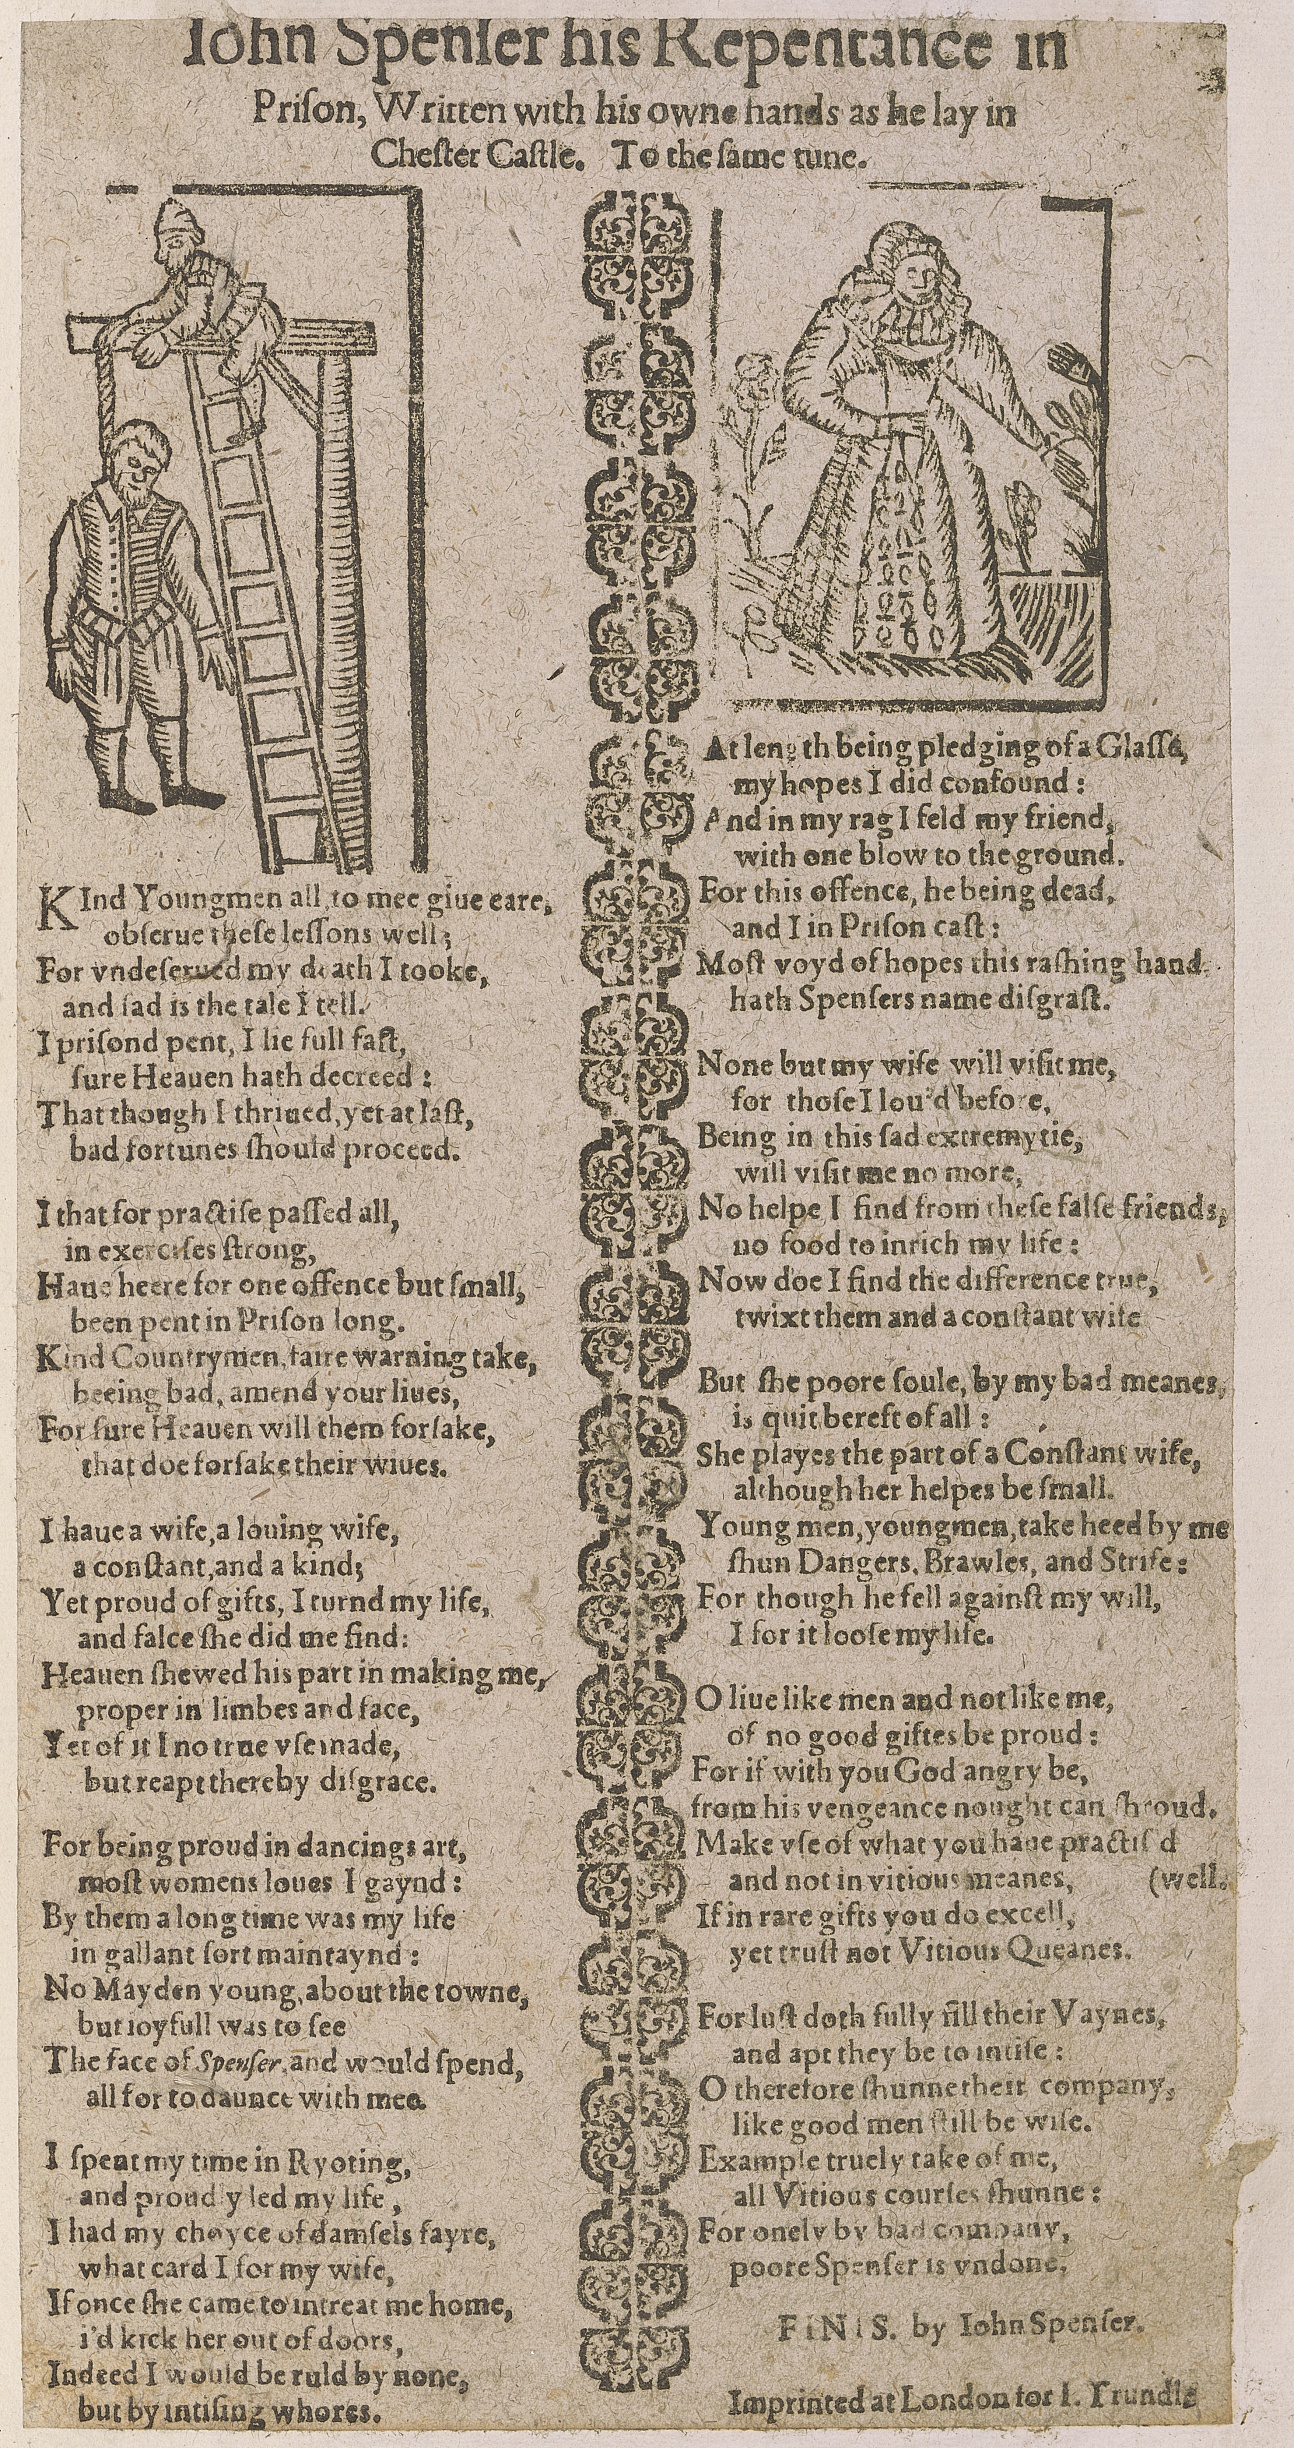 Iohn Spenſer his Repentance in
Priſon, Written with his owne hands as he lay in
Cheſter Caſtle. To the ſame tune.
KInd Youngmen all, to mee giue eare,
obſerue theſe leſſons well;
For vndeſerued my death I tooke,
and ſad is the tale I tell.
I priſond pent, I lie full faſt,
ſure Heauen hath decreed :
That though I thriued, yet at laſt,
bad fortunes ſhould proceed.
I that for practiſe paſſed all,
in exerciſes ſtrong,
Haue heere for one offence but ſmall,
been pent in Priſon long.
Kind Countrymen, faire warning take,
beeing bad, amend your liues,
For ſure Heauen will them forſake,
that doe forſake their wiues.
I haue a wife, a louing wife,
a conſtant, and a kind;
Yet proud of gifts, I turnd my life,
and falce ſhe did me find:
Heauen ſhewed his part in making me,
proper in limbes and face,
Yet of it I no true vſe made,
but reapt thereby diſgrace.
For being proud in dancings art,
moſt womens loues I gaynd :
By them a long time was my life
in gallant ſort maintaynd :
No Mayden young, about the towne,
but ioyfull was to ſee
The face of Spenſer, and would ſpend,
all for to daunce with mee.
I ſpent my time in Ryoting,
and proudly led my life,
I had my choyce of damſels fayre,
what card I for my wife,
If once ſhe came to intreat me home,
i'd kick her out of doors,
Indeed I would be ruld by none,
but by intiſing whores.
At length being pledging of a Glaſſe,
my hopes I did confound :
And in my rag I feld my friend,
with one blow to the ground.
For this offence, he being dead,
and I in Priſon caſt :
Moſt voyd of hopes this raſhing hand
hath Spenſers name diſgraſt.
None but my wife will viſit me,
for thoſe I lou'd before,
Being in this ſad extremytie,
will viſit me no more,
No helpe I find from theſe falſe friends,
no food to inrich my life :
Now doe I find the difference true,
twixt them and a conſtant wife
But ſhe poore ſoule, by my bad meanes,
is quit bereft of all :
She playes the part of a Conſtant wife,
although her helpes be ſmall.
Young men, youngmen, take heed by me
ſhun Dangers, Brawles, and Strife :
For though he fell againſt my will,
I for it looſe my life.
O liue like men and not like me,
of no good giftes be proud :
For if with you God angry be,
from his vengeance nought can ſhroud.
Make vſe of what you haue practiſ'd
and not in vitious meanes, (well.
If in rare gifts you do excell,
yet truſt not Vitious Queanes.
For luſt doth fully fill their Vaynes,
and apt they be to intiſe :
O therefore ſhunne their company,
like good men ſtill be wiſe.
Example truely take of me,
all Vitious courſes ſhunne :
For onely by bad company,
poore Spenſer is vndone.
FINIS. by Iohn Spenſer.
Imprinted at London for I. Trundle